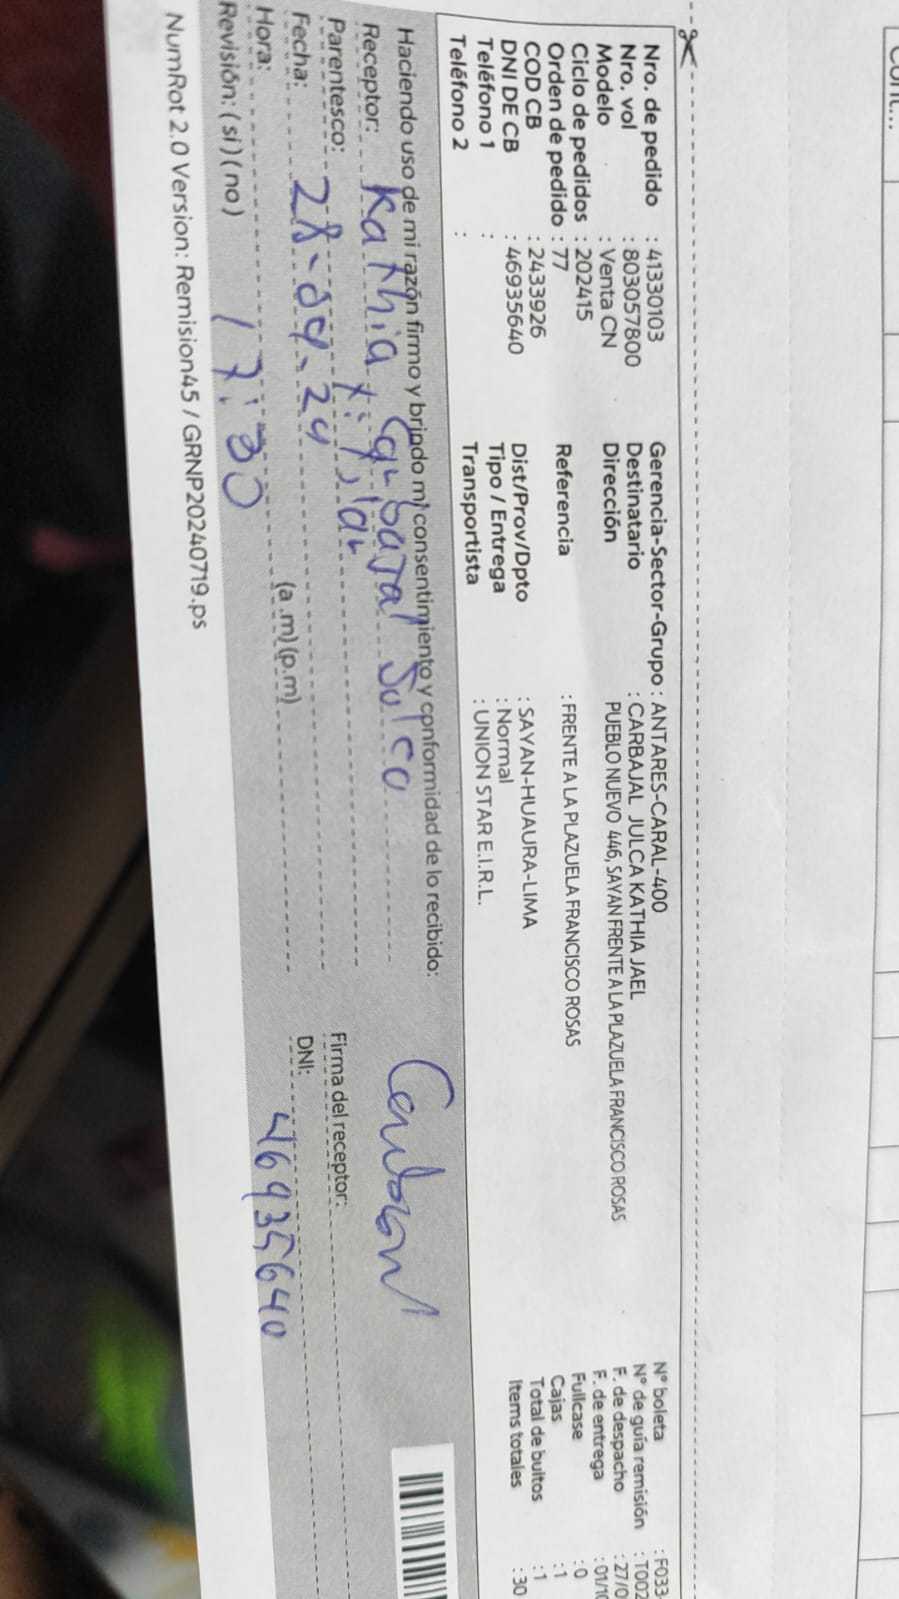 Cont...
Nro. de pedido : 41330103
Nro. vol : 803057800
Modelo : Venta CN
Ciclo de pedidos : 202415
Orden de pedido : 77
COD CB : 2433926
DNI DE CB : 46935640
Teléfono 1 :
Teléfono 2 :
Gerencia-Sector-Grupo : ANTARES-CARAL-400
Destinatario : CARBAJAL JULCA KATHIA JAEL
Dirección PUEBLO NUEVO 446, SAYAN FRENTE A LA PLAZUELA FRANCISCO ROSAS
Referencia : FRENTE A LA PLAZUELA FRANCISCO ROSAS
Dist/Prov/Dpto : SAYAN-HUAURA-LIMA
Tipo / Entrega : Normal
Transportista : UNION STAR E.I.R.L.
N° boleta : F033-
N° de guía remisión : T002
F. de despacho : 27/0
F. de entrega : 01/10
Fullcase : 0
Cajas : 1
Total de bultos : 1
Items totales : 30
Haciendo uso de mi razón firmo y brindo mi consentimiento y conformidad de lo recibido:
Receptor: Kathia Carbajal
Parentesco: titular
Fecha: 28-09-24
Hora: 17:30 (a .m) (p.m)
Revisión: ( si ) ( no )
Firma del receptor:
DNI: 46935640
NumRot 2.0 Version: Remision45 / GRNP20240719.ps